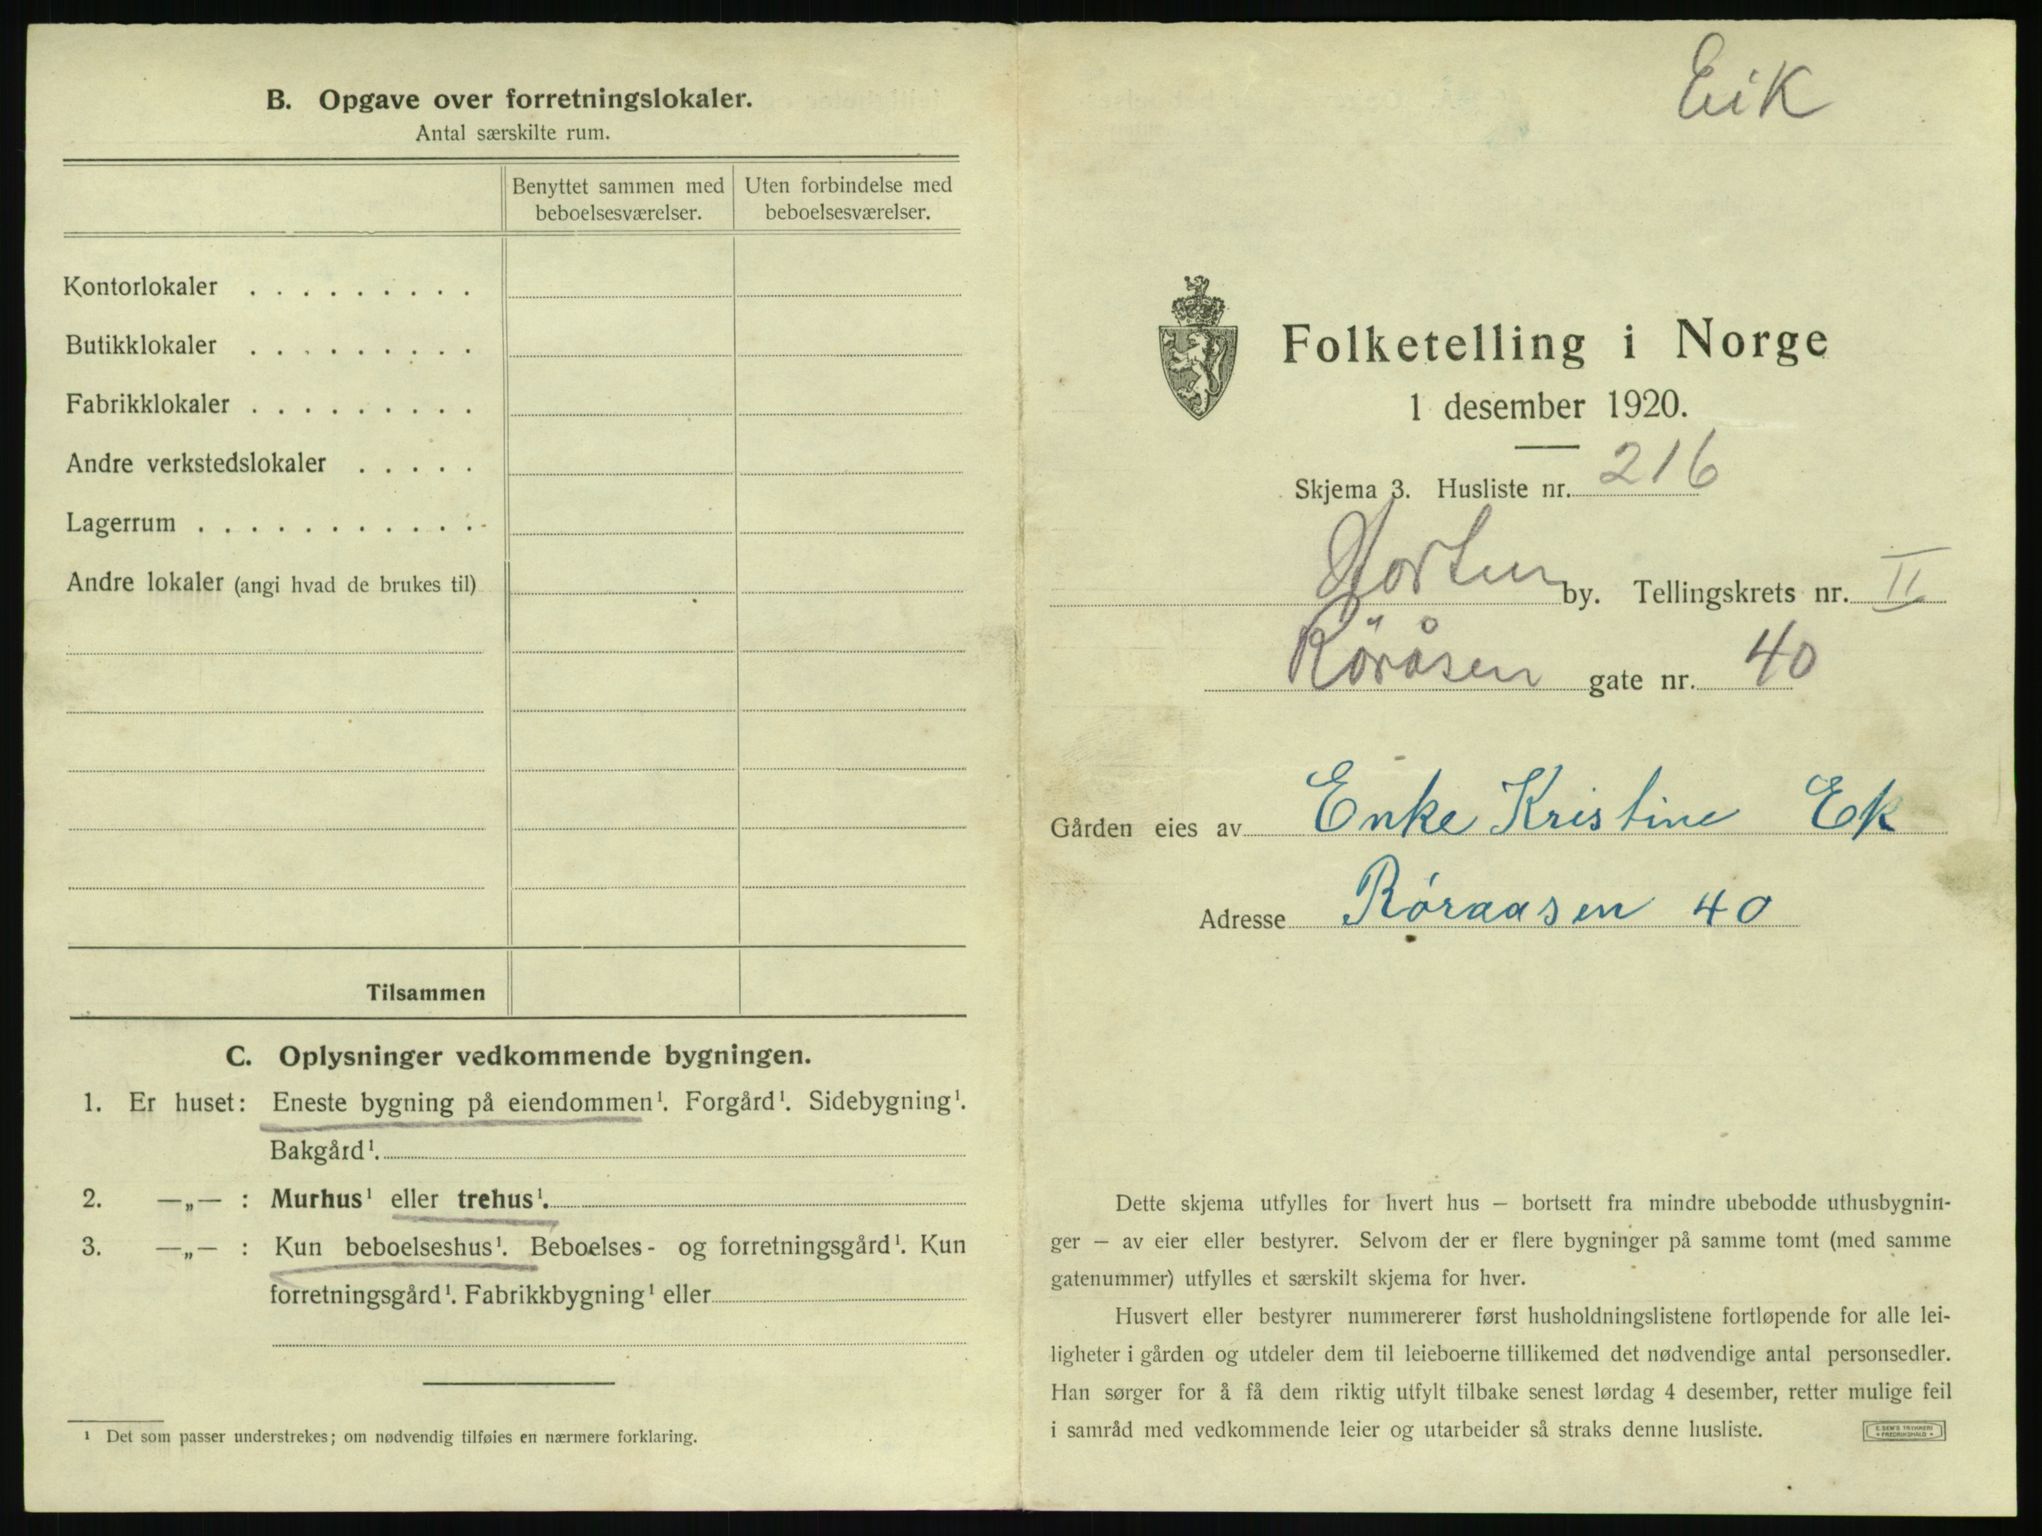 B. Opgave over forretningslokaler.
Antal særskilte rum.
Benyttet sammen med beboelsesværelser.
Uten forbindelse med beboelsesværelser.
Kontorlokaler . . . . . . . . .
Butikklokaler . . . . . . . . .
Fabrikklokaler . . . . . . . . .
Andre verkstedslokaler . . . . .
Lagerrum . . . . . . . . . . .
Andre lokaler (angi hvad de brukes til)
Tilsammen
C. Oplysninger vedkommende bygningen.
1. Er huset: Eneste bygning på eiendommen¹. Forgård¹. Sidebygning¹.
Bakgård¹.
2. —„— : Murhus¹ eller trehus¹.
3. —„— : Kun beboelseshus¹. Beboelses- og forretningsgård¹. Kun
forretningsgård¹. Fabrikkbygning¹ eller
¹ Det som passer understrekes; om nødvendig tilføies en nærmere forklaring.
Eik
Folketelling i Norge
1 desember 1920.
Skjema 3. Husliste nr. 216
Horten by. Tellingskrets nr. II
Röråsen gate nr. 40
Gården eies av Enke Kristine Ek
Adresse Røraasen 40
Dette skjema utfylles for hvert hus – bortsett fra mindre ubebodde uthusbygnin-
ger – av eier eller bestyrer. Selvom der er flere bygninger på samme tomt (med samme
gatenummer) utfylles et særskilt skjema for hver.
Husvert eller bestyrer nummererer først husholdningslistene fortløpende for alle lei-
ligheter i gården og utdeler dem til leieboerne tillikemed det nødvendige antal personsedler.
Han sørger for å få dem riktig utfylt tilbake senest lørdag 4 desember, retter mulige feil
i samråd med vedkommende leier og utarbeider så straks denne husliste.
E. SEM'S TRYKKERI
• FREDRIKSHALD •